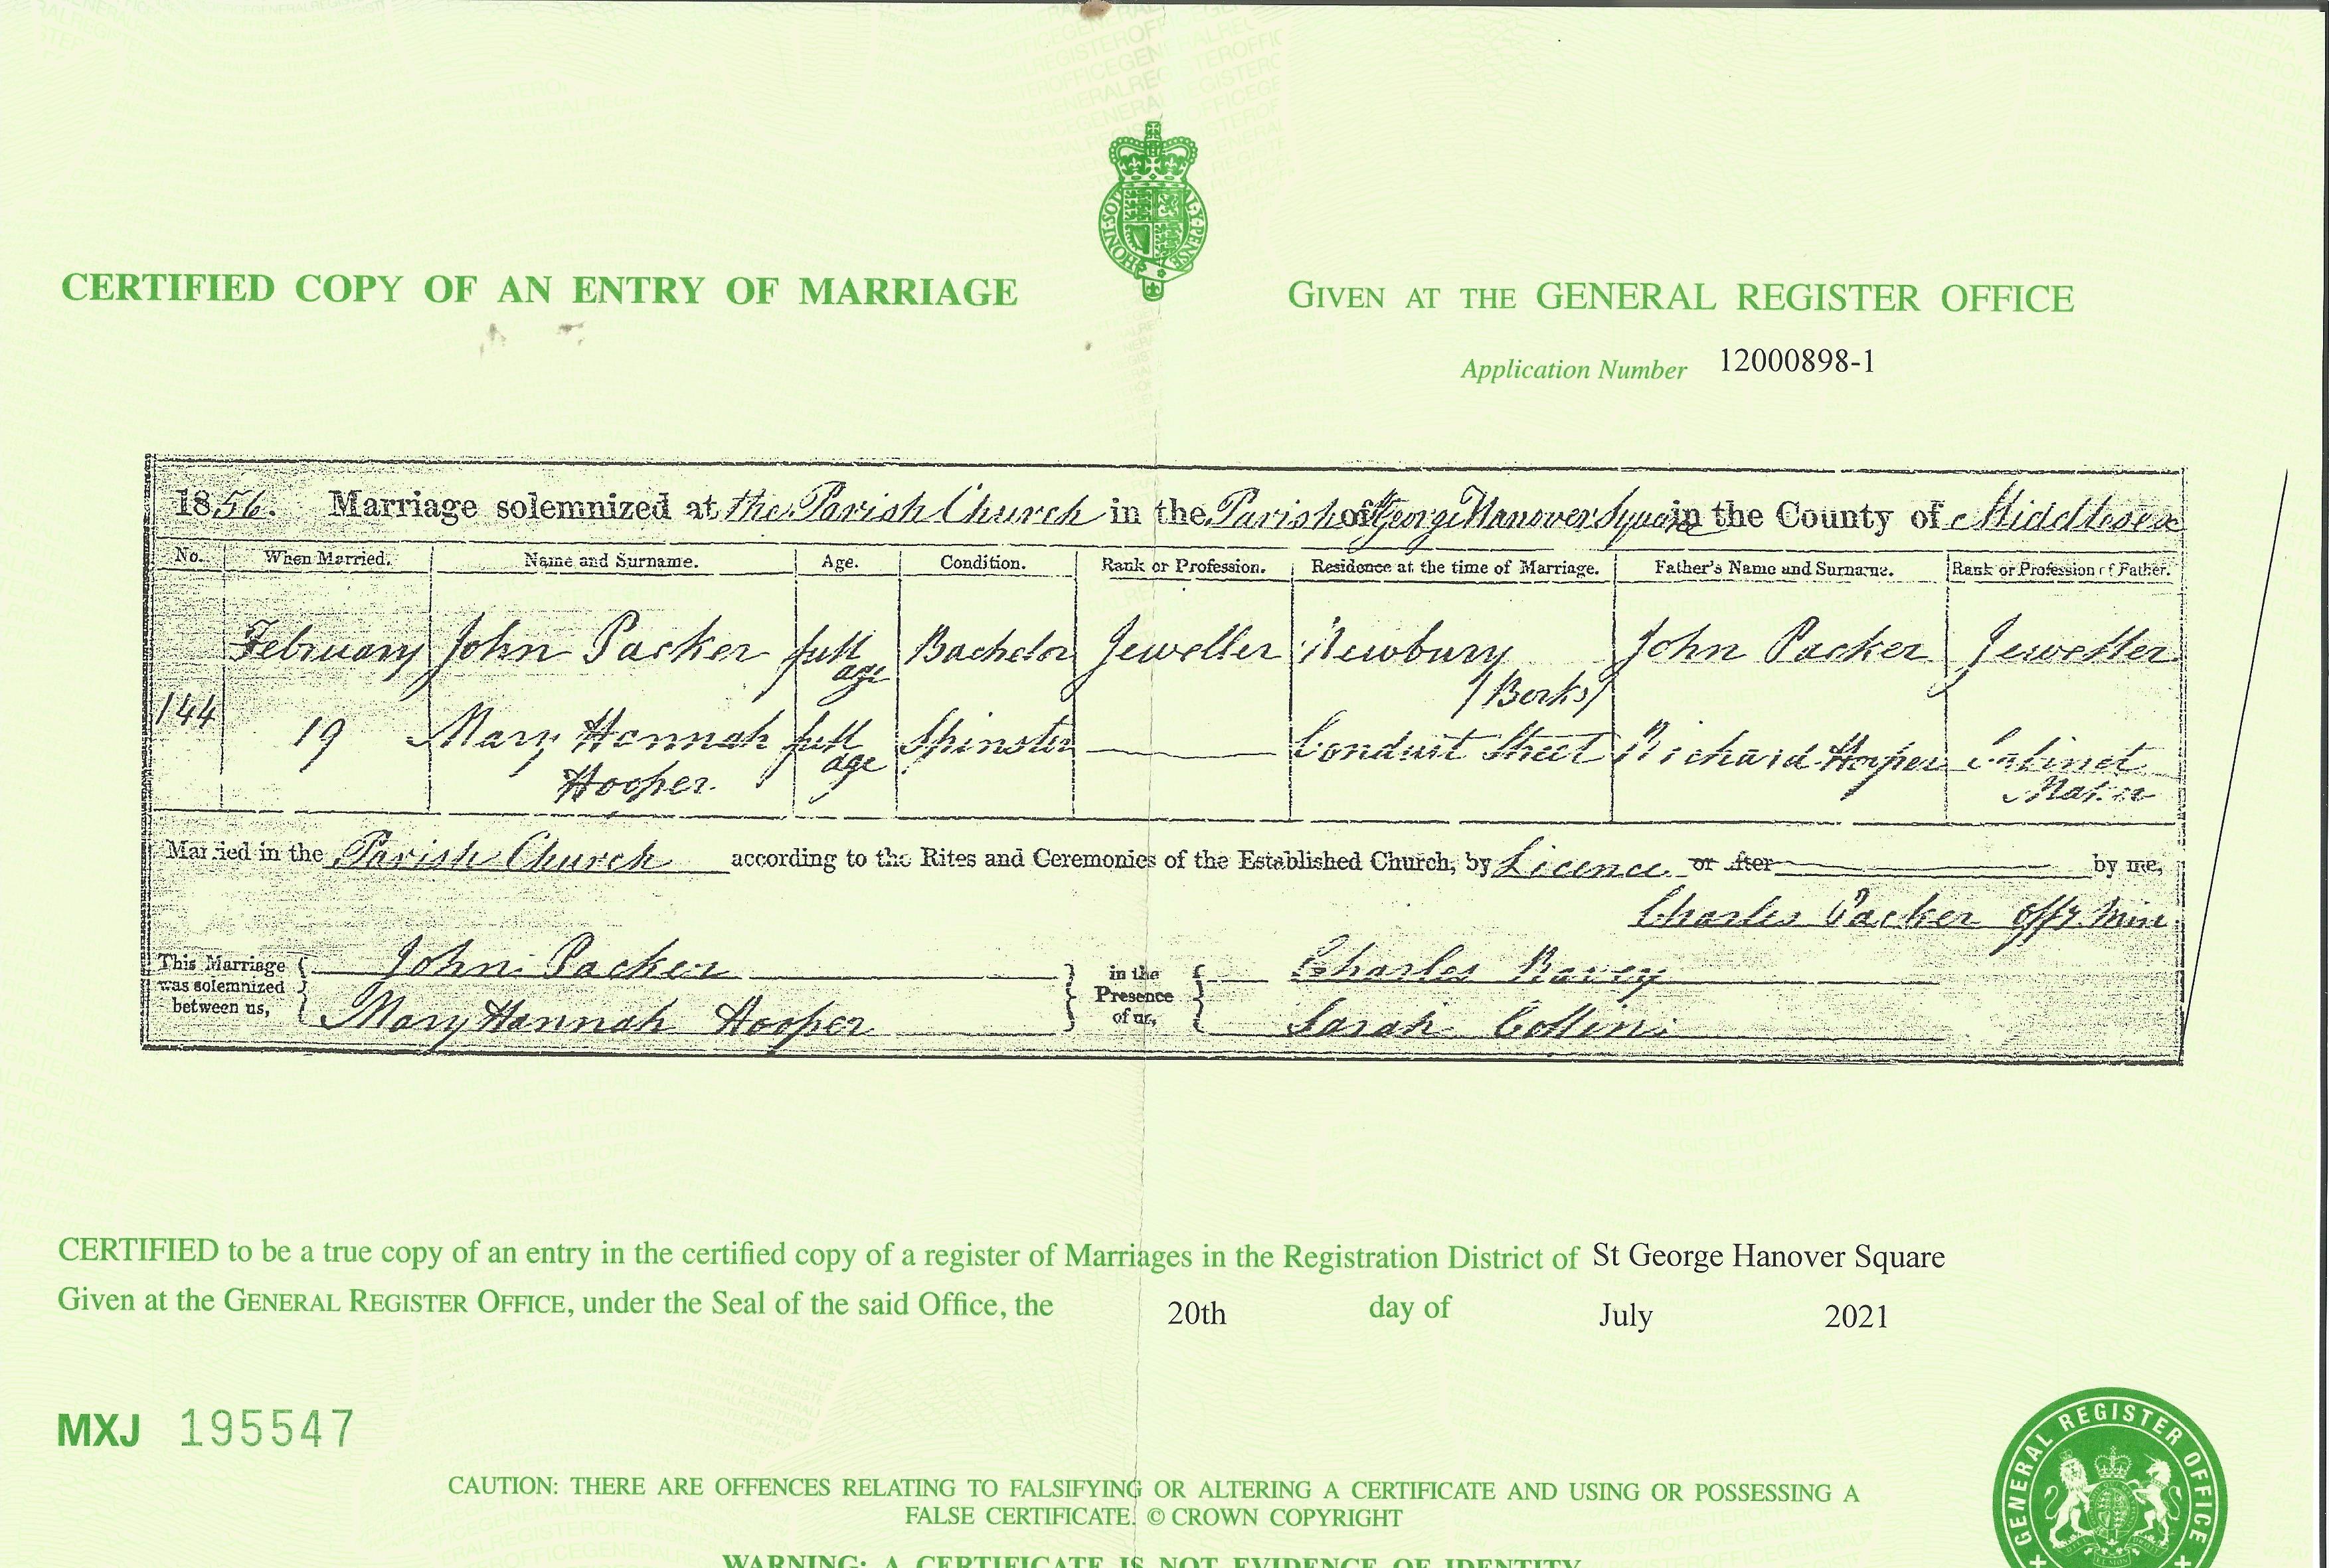 CERTIFIED COPY OF AN ENTRY OF MARRIAGE
HONI·SOIT
AL·Y·PENSE
GIVEN AT THE GENERAL REGISTER OFFICE
Application Number 12000898-1
1856. Marriage solemnized at the Parish Church in the Parish of George Hanover Square in the County of Middlesex
No. When Married. Name and Surname. Age. Condition. Rank or Profession. Residence at the time of Marriage. Father's Name and Surname. Rank or Profession of Father.
February John Packer full age Bachelor Jeweller Newbury (Berks) John Packer Jeweller
144 19 Mary Hannah Hooper full age Spinster Conduit Street Richard Hooper Cabinet Maker
Married in the Parish Church according to the Rites and Ceremonies of the Established Church, by Licence or after by me,
Charles Packer Offg. Min.
This Marriage was solemnized between us, John Packer in the Presence of us, Charles
Mary Hannah Hooper Sarah Collins
CERTIFIED to be a true copy of an entry in the certified copy of a register of Marriages in the Registration District of St George Hanover Square
Given at the GENERAL REGISTER OFFICE, under the Seal of the said Office, the 20th day of July 2021
MXJ 195547
GENERAL REGISTER OFFICE
CAUTION: THERE ARE OFFENCES RELATING TO FALSIFYING OR ALTERING A CERTIFICATE AND USING OR POSSESSING A
FALSE CERTIFICATE. © CROWN COPYRIGHT
WARNING: A CERTIFICATE IS NOT EVIDENCE OF IDENTITY